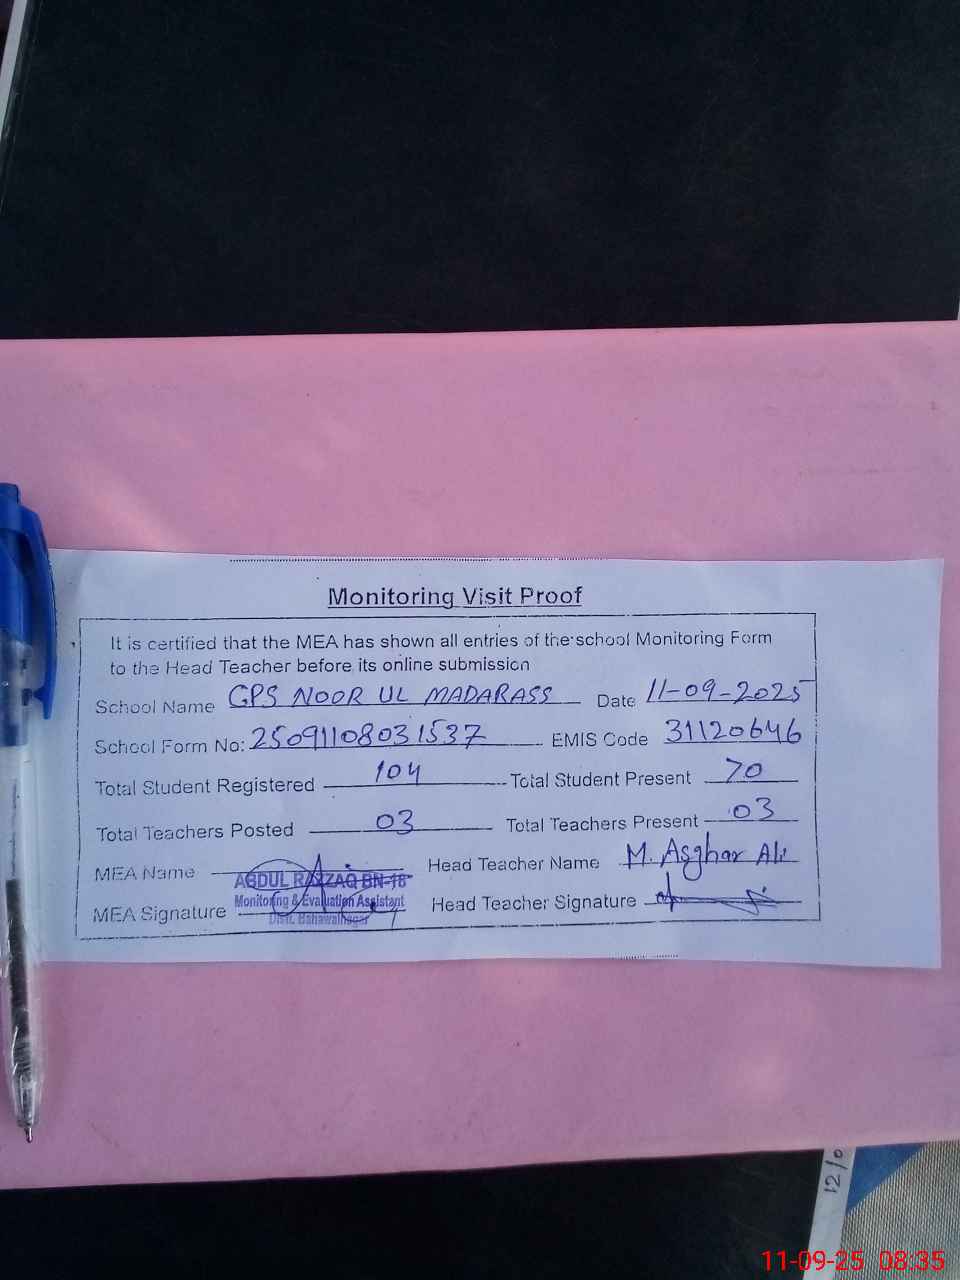 Monitoring Visit Proof
It is certified that the MEA has shown all entries of the school Monitoring Form
to the Head Teacher before its online submission
School Name GPS NOOR UL MADARASS Date 11-09-2025
School Form No: 25091108031537 EMIS Code 31120646
Total Student Registered 104 Total Student Present 70
Total Teachers Posted 03 Total Teachers Present 03
MEA Name Head Teacher Name M. Asghar Ali
ABDUL RAZZAQ BN-18
Monitoring & Evaluation Assistant
Distt. Bahawalnagar
MEA Signature Head Teacher Signature
12/0
11-09-25 08:35